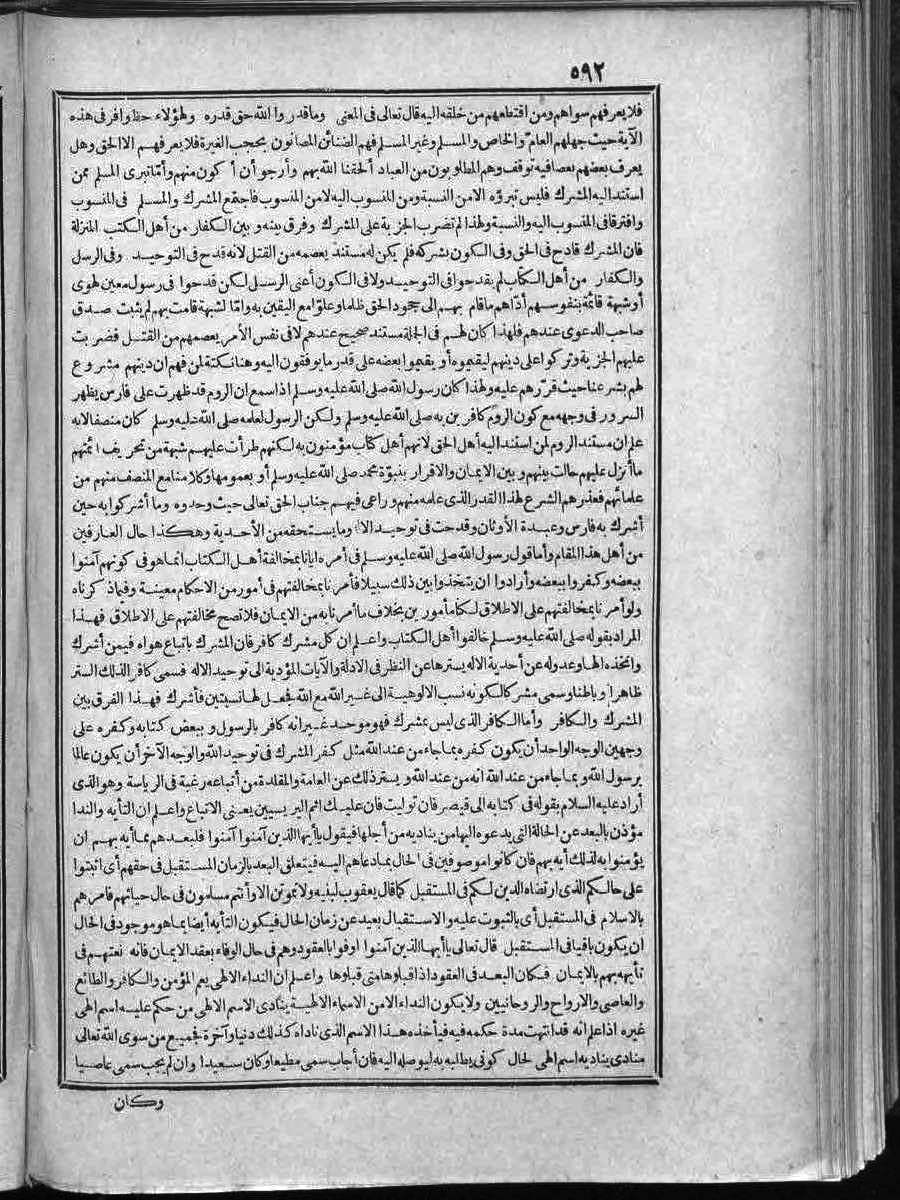 ٥٩٢
فلا يعرفهم سواهم ومن اقتطعهم من خلقه اليه قال تعالى في المعنى وما قدروا الله حق قدره ولهؤلاء حظ وافر في هذه
الآية حيث جهلهم العام والخاص والمسلم وغير المسلم فهم الضنائن المصانون بحجب الغيرة فلا يعرفهم الا الحق وهل
يعرف بعضهم بعضا فيه توقف وهم المطلوبون من العباد ألحقنا الله بهم وأرجو أن أكون منهم وأما تبرى المسلم ممن
استند اليه المشرك فليس تبرؤه الا من النسبة ومن المنسوب اليه لا من المنسوب فاجتمع المشرك والمسلم في المنسوب
وافترقا في المنسوب اليه والنسبة ولهذا لم تضرب الجزية على المشرك وفرق بينه وبين الكفار من أهل الكتب المنزلة
فان المشرك قادح في الحق وفي الكون بشركه فلم يكن له مستند يعصمه من القتل لانه قدح في التوحيد وفي الرسل
والكفار من أهل الكتاب لم يقدحوا في التوحيد ولا في الكون أعني الرسل لكن قدحوا في رسول معين لهوى
أوشبهة قائمة بنفوسهم أداهم ما قام بهم الى جحود الحق ظلما وعلوا مع اليقين به واما لشبهة قامت بهم لم يثبت صدق
صاحب الدعوى عندهم فلهذا كان لهم في الجملة مستند صحيح عندهم لا في نفس الأمر يعصمهم من القتل فضربت
عليهم الجزية وتركوا على دينهم ليقيموه أو يقيموا بعضه على قدر ما يوفقون اليه وهنا نكتة لمن فهم ان دينهم مشروع
لهم بشرعنا حيث قررهم عليه ولهذا كان رسول الله صلى الله عليه وسلم اذا سمع ان الروم قد ظهرت على فارس يظهر
السرور في وجهه مع كون الروم كافرين به صلى الله عليه وسلم ولكن الرسول لعلمه صلى الله عليه وسلم كان منصفا لانه
علم ان مستند الروم لمن استند اليه أهل الحق لانهم أهل كتاب مؤمنون به لكنهم طرأت عليهم شبهة من تحريف ائمتهم
ما أنزل عليهم حالت بينهم وبين الايمان والاقرار بنبوة محمد صلى الله عليه وسلم أو بعمومها وكلامنا مع المنصف منهم من
علمائهم فعذرهم الشرع لهذا القدر الذى علمه منهم وراعى فيهم جناب الحق تعالى حيث وحدوه وما أشركوا به حين
أشرك به فارس وعبدة الأوثان وقدحت في توحيد الاله وما يستحقه من الأحدية وهكذا حال العارفين
من أهل هذا المقام وأما قول رسول الله صلى الله عليه وسلم في أمره ايانا بمخالفة أهل الكتاب انما هو في كونهم آمنوا
ببعضه وكفروا ببعضه وأرادوا ان يتخذوا بين ذلك سبيلا فأمرنا بمخالفتهم في أمور من الاحكام معينة وفيما ذكرناه
ولو أمرنا بمخالفتهم على الاطلاق لكنا مأمورين بخلاف ما أمرنا به من الايمان فلا تصح مخالفتهم على الاطلاق فهذا
المراد بقوله صلى الله عليه وسلم خالفوا أهل الكتاب واعلم ان كل مشرك كافر فان المشرك باتباع هواه فيمن أشرك
واتخذه الها وعدوله عن أحدية الاله يسترها عن النظر في الادلة والآيات المؤدية الى توحيد الاله فسمى كافر الذلك الستر
ظاهرا وباطنا وسمى مشركا لكونه نسب الالوهية الى غير الله مع الله فجعل لها نسبتين فأشرك فهذا الفرق بين
المشرك والكافر وأما الكافر الذى ليس بمشرك فهو موحد غير انه كافر بالرسول وببعض كتابه وكفره على
وجهين الوجه الواحد أن يكون كفره بما جاء من عند الله مثل كفر المشرك في توحيد الله والوجه الآخر أن يكون عالما
برسول الله وبما جاء من عند الله انه من عند الله ويستر ذلك عن العامة والمقلدة من أتباعه رغبة في الرياسة وهو الذى
أراد عليه السلام بقوله في كتابه الى قيصر فان توليت فان عليك اثم اليريسيين يعنى الاتباع واعلم ان التأيه والندا
مؤذن بالبعد عن الحالة التى يدعوه اليها من يناديه من أجلها فيقول يا أيها الذين آمنوا آمنوا فلبعدهم مما أيه بهم ان
يؤمنوا به لذلك أيه بهم فان كانوا موصوفين في الحال بما دعاهم اليه فيتعلق البعد بالزمان المستقبل في حقهم أى اثبتوا
على حالكم الذى ارتضاه الدين لكم في المستقبل كما قال يعقوب لبنيه ولا تموتن الا وأنتم مسلمون في حال حياتهم فامرهم
بالاسلام في المستقبل أى بالثبوت عليه والاستقبال بعيد عن زمان الحال فيكون التأيه أيضا بما هو موجود في الحال
ان يكون باقيا في المستقبل قال تعالى يا أيها الذين آمنوا اوفوا بالعقود وهم في حال الوفاء بعقد الايمان فانه نعتهم في
تأيهه بهم بالايمان فكان البعد في العقود اذا قبلوها متى قبلوها واعلم ان النداء الالهى يعم المؤمن والكافر والطائع
والعاصى والارواح والروحانيين ولا يكون النداء الا من الاسماء الالهية ينادى الاسم الالهى من حكم عليه اسم الهى
غيره اذا علم انه قد انتهت مدة حكمه فيه فيأخذه هذا الاسم الذى ناداه كذلك دنيا وآخرة فجميع من سوى الله تعالى
منادى يناديه اسم الهى لحال كونى يطلبه به ليوصله اليه فان أجاب سمى مطيعا وكان سعيدا وان لم يجب سمى عاصيا
وكان